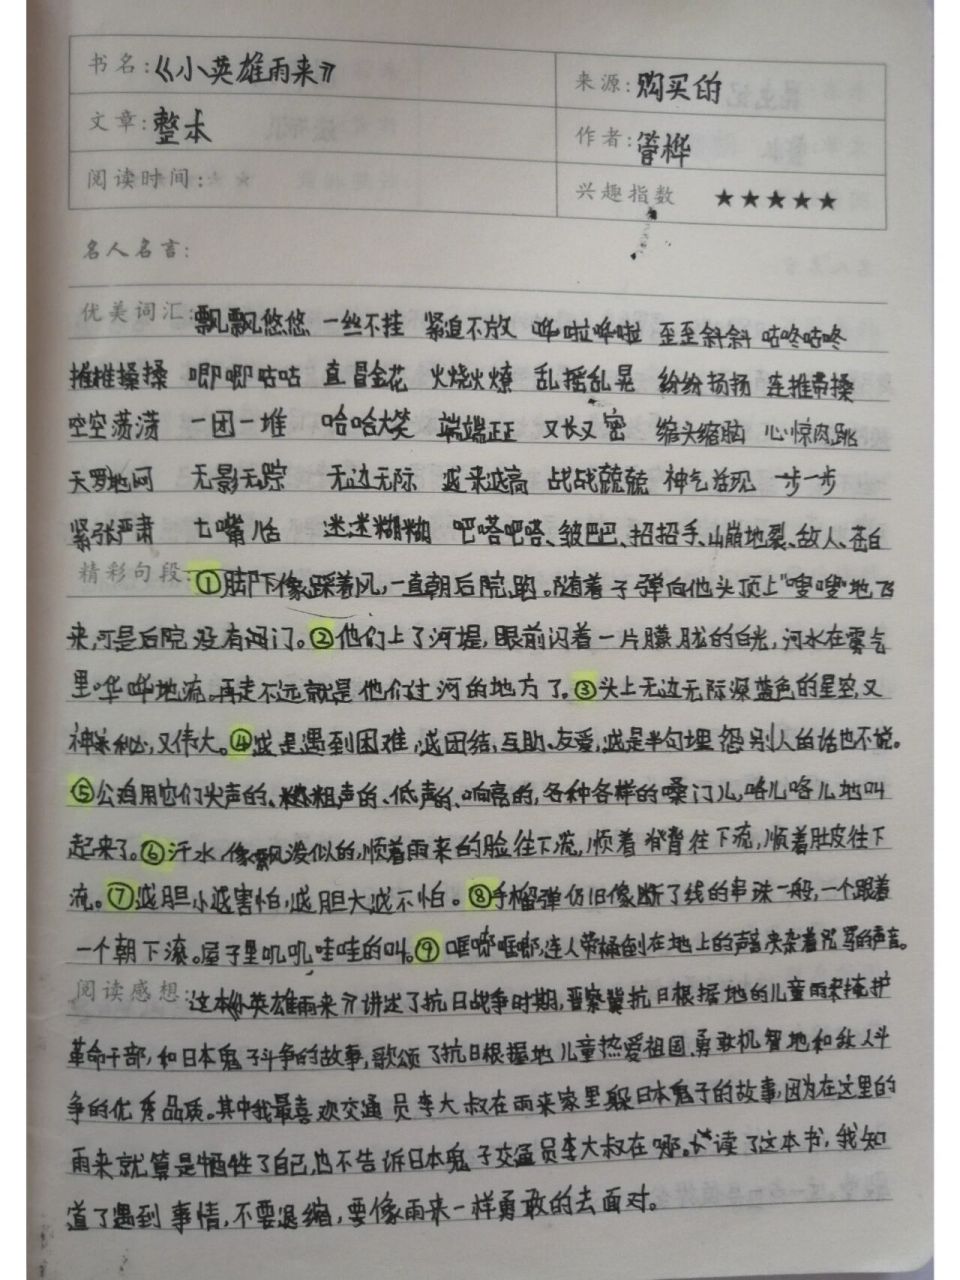 书名:《小英雄雨来》 来源:购买的
文章:整本 作者:管桦
阅读时间: 兴趣指数 ★★★★★
名人名言:
优美词汇:飘飘悠悠 一丝不挂 紧迫不放 哗啦哗啦 歪歪斜斜 咕咚咕咚
推推搡搡 唧唧咕咕 直冒金花 火烧火燎 乱摇乱晃 纷纷扬扬 连推带搡
空空荡荡 一团一堆 哈哈大笑 端端正正 又长又密 缩头缩脑 心惊肉跳
天罗地网 无影无踪 无边无际 越来越高 战战兢兢 神气活现 一步一步
紧张严肃 七嘴八舌 迷迷糊糊 吧嗒吧嗒、皱巴巴、招招手、山崩地裂、敌人、苍白
精彩句段:①脚下像踩着风,一直朝后院跑。随着子弹向他头顶上"嗖嗖"地飞
来,可是后院没有闷门。②他们上了河堤,眼前闪着一片朦胧的白光,河水在雾气
里哗哗地流。再走不远就是他们过河的地方了。③头上无边无际深蓝色的星空,又
神秘,又伟大。④越是遇到困难,越团结,互助、友爱,越是半句埋怨别人的话也不说。
⑤公鸡用它们尖声的、粗声的、低声的、响亮的,各种各样的嗓门儿,咯儿咯儿地叫
起来了。⑥汗水,像瓢泼似的,顺着雨来的脸往下流,顺着脊背往下流,顺着肚皮往下
流。⑦越胆小越害怕,越胆大越不怕。⑧手榴弹仍旧像断了线的串珠一般,一个跟着
一个朝下滚。屋子里叽叽哇哇的叫。⑨哐啷哐啷,连人带桶倒在地上的声音夹杂着咒骂的声音。
阅读感想:这本《小英雄雨来》讲述了抗日战争时期,晋察冀抗日根据地的儿童雨来掩护
革命干部,和日本鬼子斗争的故事,歌颂了抗日根据地儿童热爱祖国、勇敢机智地和敌人斗
争的优秀品质。其中我最喜欢交通员李大叔在雨来家里躲日本鬼子的故事,因为在这里的
雨来就算是牺牲了自己也不告诉日本鬼子交通员李大叔在哪。读了这本书,我知
道了遇到事情,不要退缩,要像雨来一样勇敢的去面对。